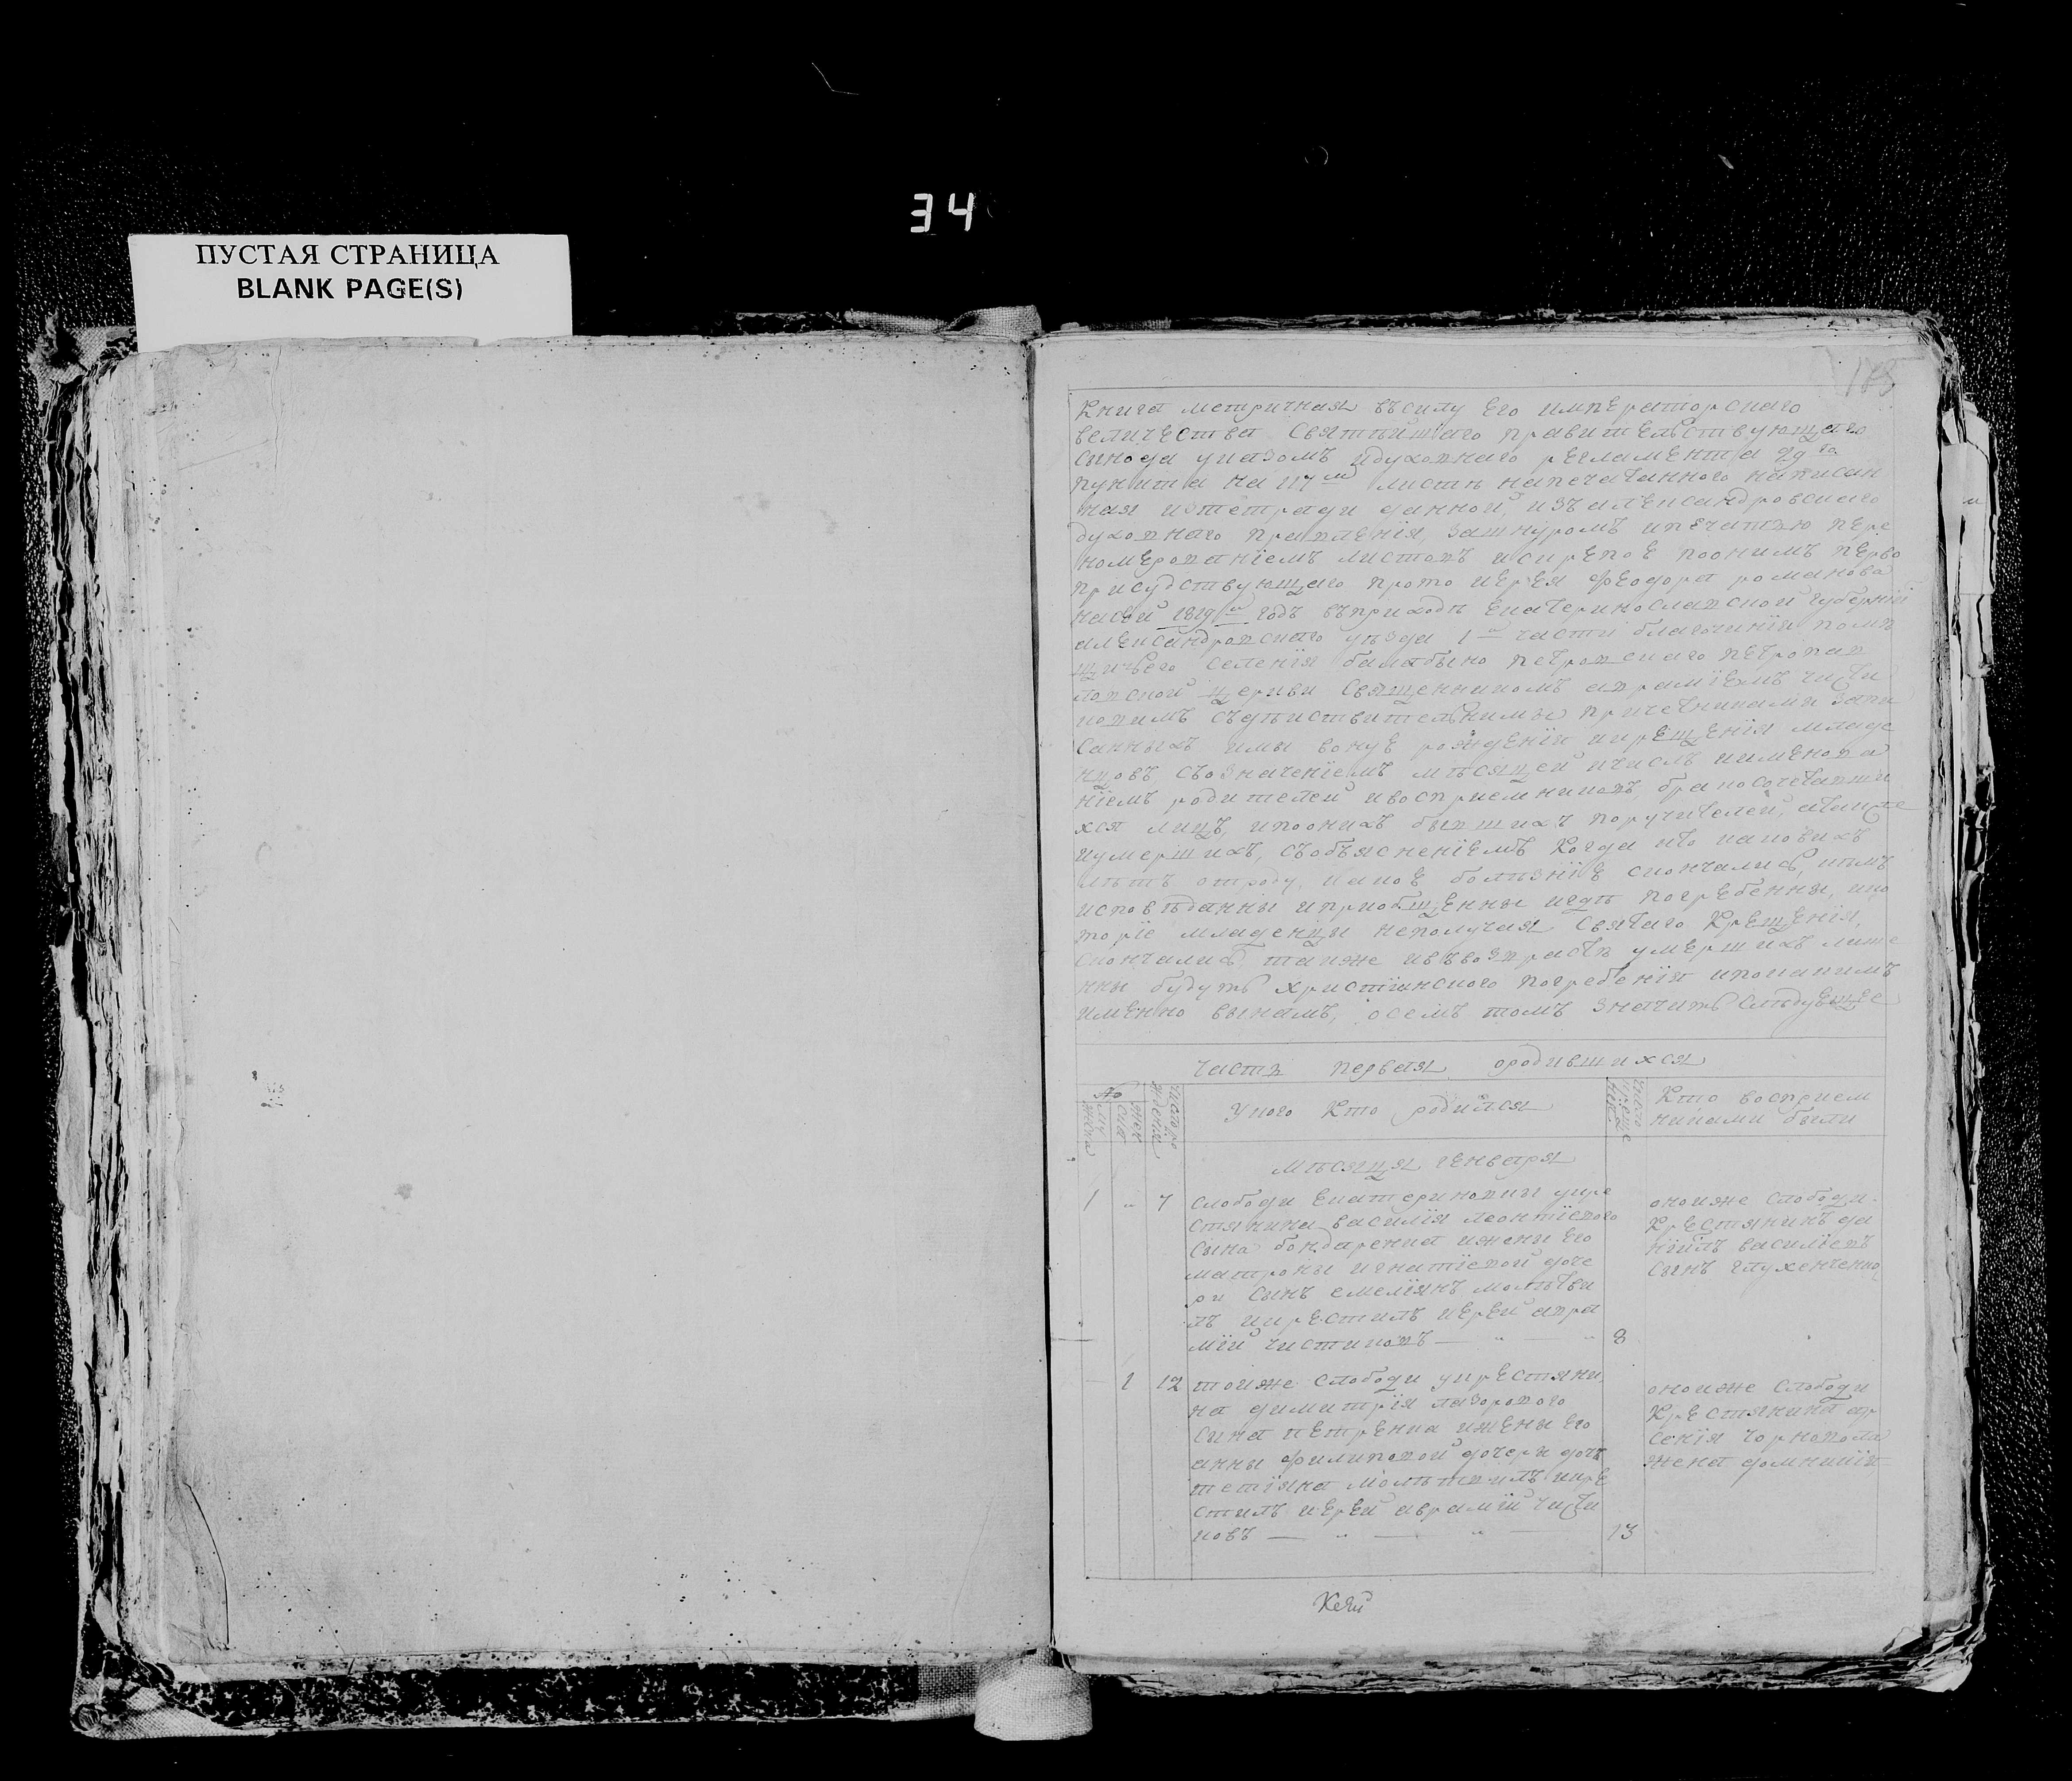 34
ПУСТАЯ СТРАНИЦА
BLANK PAGE(S)
Книга метричная въсилу Его императорскаго
величества святѣйшаго правительствующаго
сынода указомъ идуховнаго регламента 29го
пункта на 117м листѣ напечатанного написан
ная изтетради данной, изъ александровскаго
духовнаго правленія, зашнуромъ ипечатью пере
номерованіемъ листовъ искрепое поонимъ перво
присудствующаго прото иерея феодора романова
насей 1819й годъ въприходъ Екатеринославской губерніи
александровскаго уѣзда 1й части благочинія помѣ
щичьего селенія балабыно петровскаго петропав
ловской церкви священникомъ аврамиемъ чисти
ковимъ съдѣиствителнимы причетниками запи
санныхъ имы вонуѣ рожденіи икрещенія младе
нцовъ, съозначеніемъ мѣсяцей ичислъ именова
ніемъ родителей ивосприемниковъ, бракосочетавши
хся лицъ, ипоонихъ бывшихъ поручителей, атакже
иумершихъ, съобъясненіемъ когда ито каковихъ
лѣтъ отроду, какое болѣзніе скончались, кѣмъ
исповѣданны иприобщенны игдѣ погребенны, ико
торіе младенци неполучая Святаго Крещенія,
скончались, также ивъвозрастѣ умершихъ лише
нны будутъ христіянского погребенія ипокакимъ
именно винамъ, осемъ томъ значитъ слѣдуещее
часть первая ородившихся
№
Укого Кто родился
Кто восприем
никами были
Мѣсяця генваря
1 " 7 слободи Екатериновки укре
стянина василія леонтіевого
сына бондаренка ижени Его
матроны игнатіевой доче
ри сынъ емеліянъ молитви
лъ икрестилъ иерей авра
мій чистиковъ — " — " 8
оноиже слободи
Крестянинъ да
ніилъ василіевъ
сынъ глухенченко
1 12 тоиже слободи укрестяни
на димитрія лазорового
сына петренка ижены его
анны филиповой дочери дочь
тетіяна молитвилъ икре
стилъ иерей аврамій чисти
ковъ — " — " 13
оноиже слободи
Крестянина ар
сенія чорновола
жена домникія